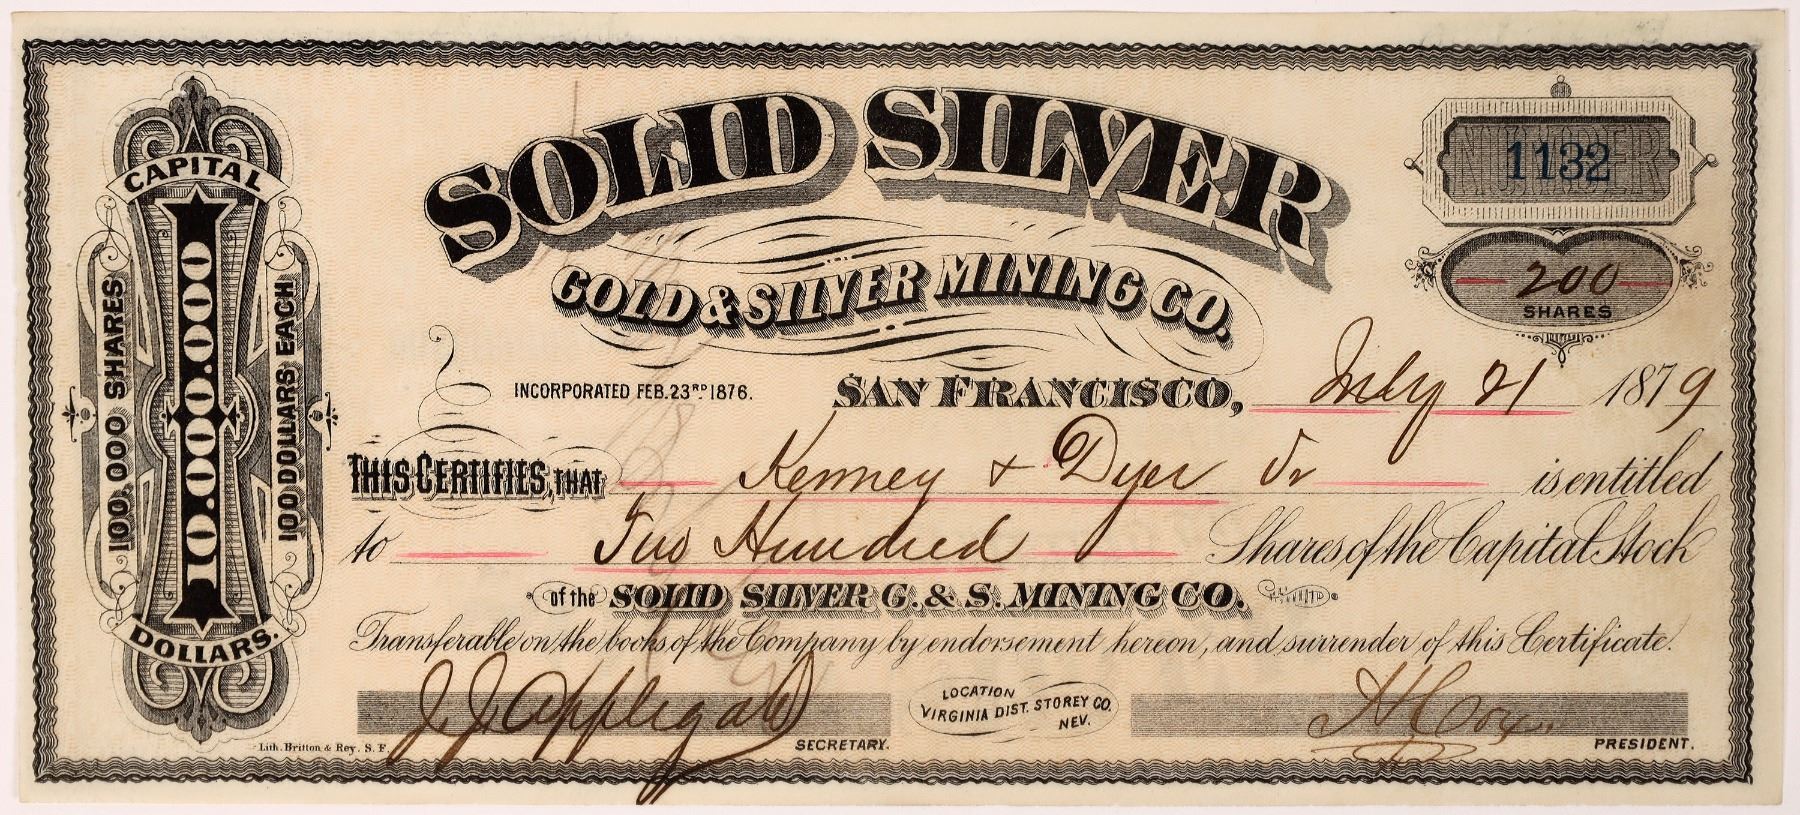 SOLID SILVER
GOLD & SILVER MINING CO.
CAPITAL
10.000.000
DOLLARS.
100,000 SHARES
100 DOLLARS EACH
NUMBER
1132
200
SHARES
INCORPORATED FEB. 23RD 1876.
SAN FRANCISCO, July 21 1879
THIS CERTIFIES, THAT Kenney & Dyer Jr is entitled
to Two Hundred Shares of the Capital Stock
of the SOLID SILVER G. & S. MINING CO. LIMITD
Transferable on the books of the Company by endorsement hereon, and surrender of this Certificate.
J. J. Applegate SECRETARY.
LOCATION
VIRGINIA DIST. STOREY CO.
NEV.
H Cox PRESIDENT.
Lith. Britton & Rey. S. F.